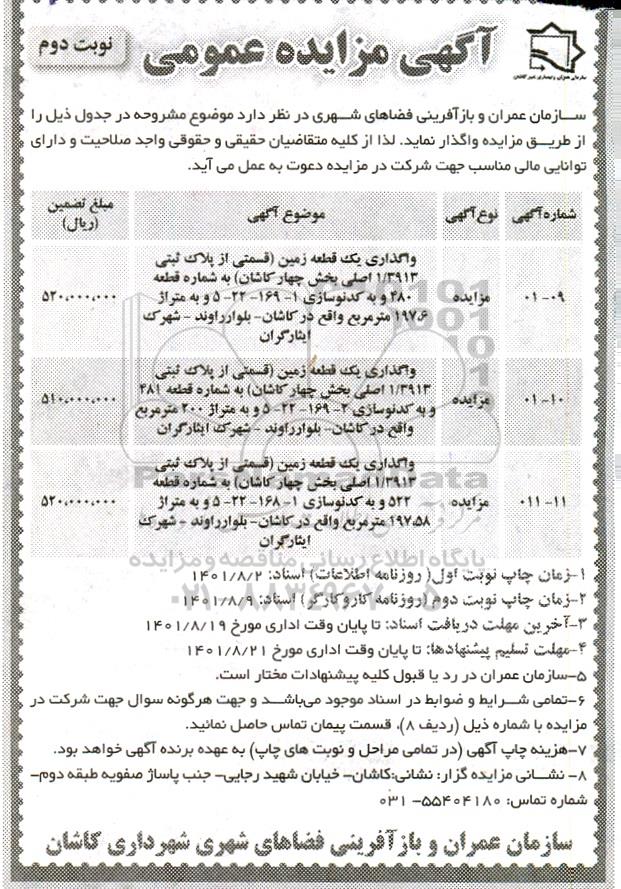 آگهی مزایده عمومی
نوبت دوم
سازمان عمران و بازآفرینی فضاهای شهری در نظر دارد موضوع مشروحه در جدول ذیل را
از طریق مزایده واگذار نماید. لذا از کلیه متقاضیان حقیقی و حقوقی واجد صلاحیت و دارای
توانایی مالی مناسب جهت شرکت در مزایده دعوت به عمل می آید.
شماره آگهی نوع آگهی موضوع آگهی مبلغ تضمین
(ریال)
واگذاری یک قطعه زمین (قسمتی از پلاک ثبتی
۱/۳۹۱۳ اصلی بخش چهار کاشان) به شماره قطعه
۰۱-۰۹ مزایده ۴۸۰ و به کدنوسازی ۱- ۱۶۹- ۲۲- ۵ و به متراژ ۵۲۰،۰۰۰،۰۰۰
۱۹۷.۶ مترمربع واقع در کاشان- بلوارراوند - شهرک
ایثارگران
واگذاری یک قطعه زمین (قسمتی از پلاک ثبتی
۱/۳۹۱۳ اصلی بخش چهار کاشان) به شماره قطعه ۴۸۱
۰۱-۱۰ مزایده و به کدنوسازی ۲- ۱۶۹- ۲۲- ۵ و به متراژ ۲۰۰ مترمربع ۵۱۰،۰۰۰،۰۰۰
واقع در کاشان- بلوارراوند - شهرک ایثارگران
واگذاری یک قطعه زمین (قسمتی از پلاک ثبتی
۱/۳۹۱۳ اصلی بخش چهار کاشان) به شماره قطعه
۰۱۱-۱۱ مزایده ۵۲۲ و به کدنوسازی ۱- ۱۶۸- ۲۲- ۵ و به متراژ ۵۲۰،۰۰۰،۰۰۰
۱۹۷.۵۸ مترمربع واقع در کاشان- بلوارراوند - شهرک
ایثارگران
پایگاه اطلاع رسانی مناقصه و مزایده
۱-زمان چاپ نوبت اول( روزنامه اطلاعات) اسناد: ۱۴۰۱/۸/۲
۲-زمان چاپ نوبت دوم (روزنامه کاروکارگر) اسناد: ۱۴۰۱/۸/۹
۳-آخرین مهلت دریافت اسناد: تا پایان وقت اداری مورخ ۱۴۰۱/۸/۱۹
۴-مهلت تسلیم پیشنهادها: تا پایان وقت اداری مورخ ۱۴۰۱/۸/۲۱
۵-سازمان عمران در رد یا قبول کلیه پیشنهادات مختار است.
۶-تمامی شرایط و ضوابط در اسناد موجود می‌باشد و جهت هرگونه سوال جهت شرکت در
مزایده با شماره ذیل (ردیف ۸)، قسمت پیمان تماس حاصل نمائید.
۷-هزینه چاپ آگهی (در تمامی مراحل و نوبت های چاپ) به عهده برنده آگهی خواهد بود.
۸- نشانی مزایده گزار: نشانی:کاشان- خیابان شهید رجایی- جنب پاساژ صفویه طبقه دوم-
شماره تماس: ۵۵۴۰۴۱۸۰- ۰۳۱
سازمان عمران و بازآفرینی فضاهای شهری شهرداری کاشان